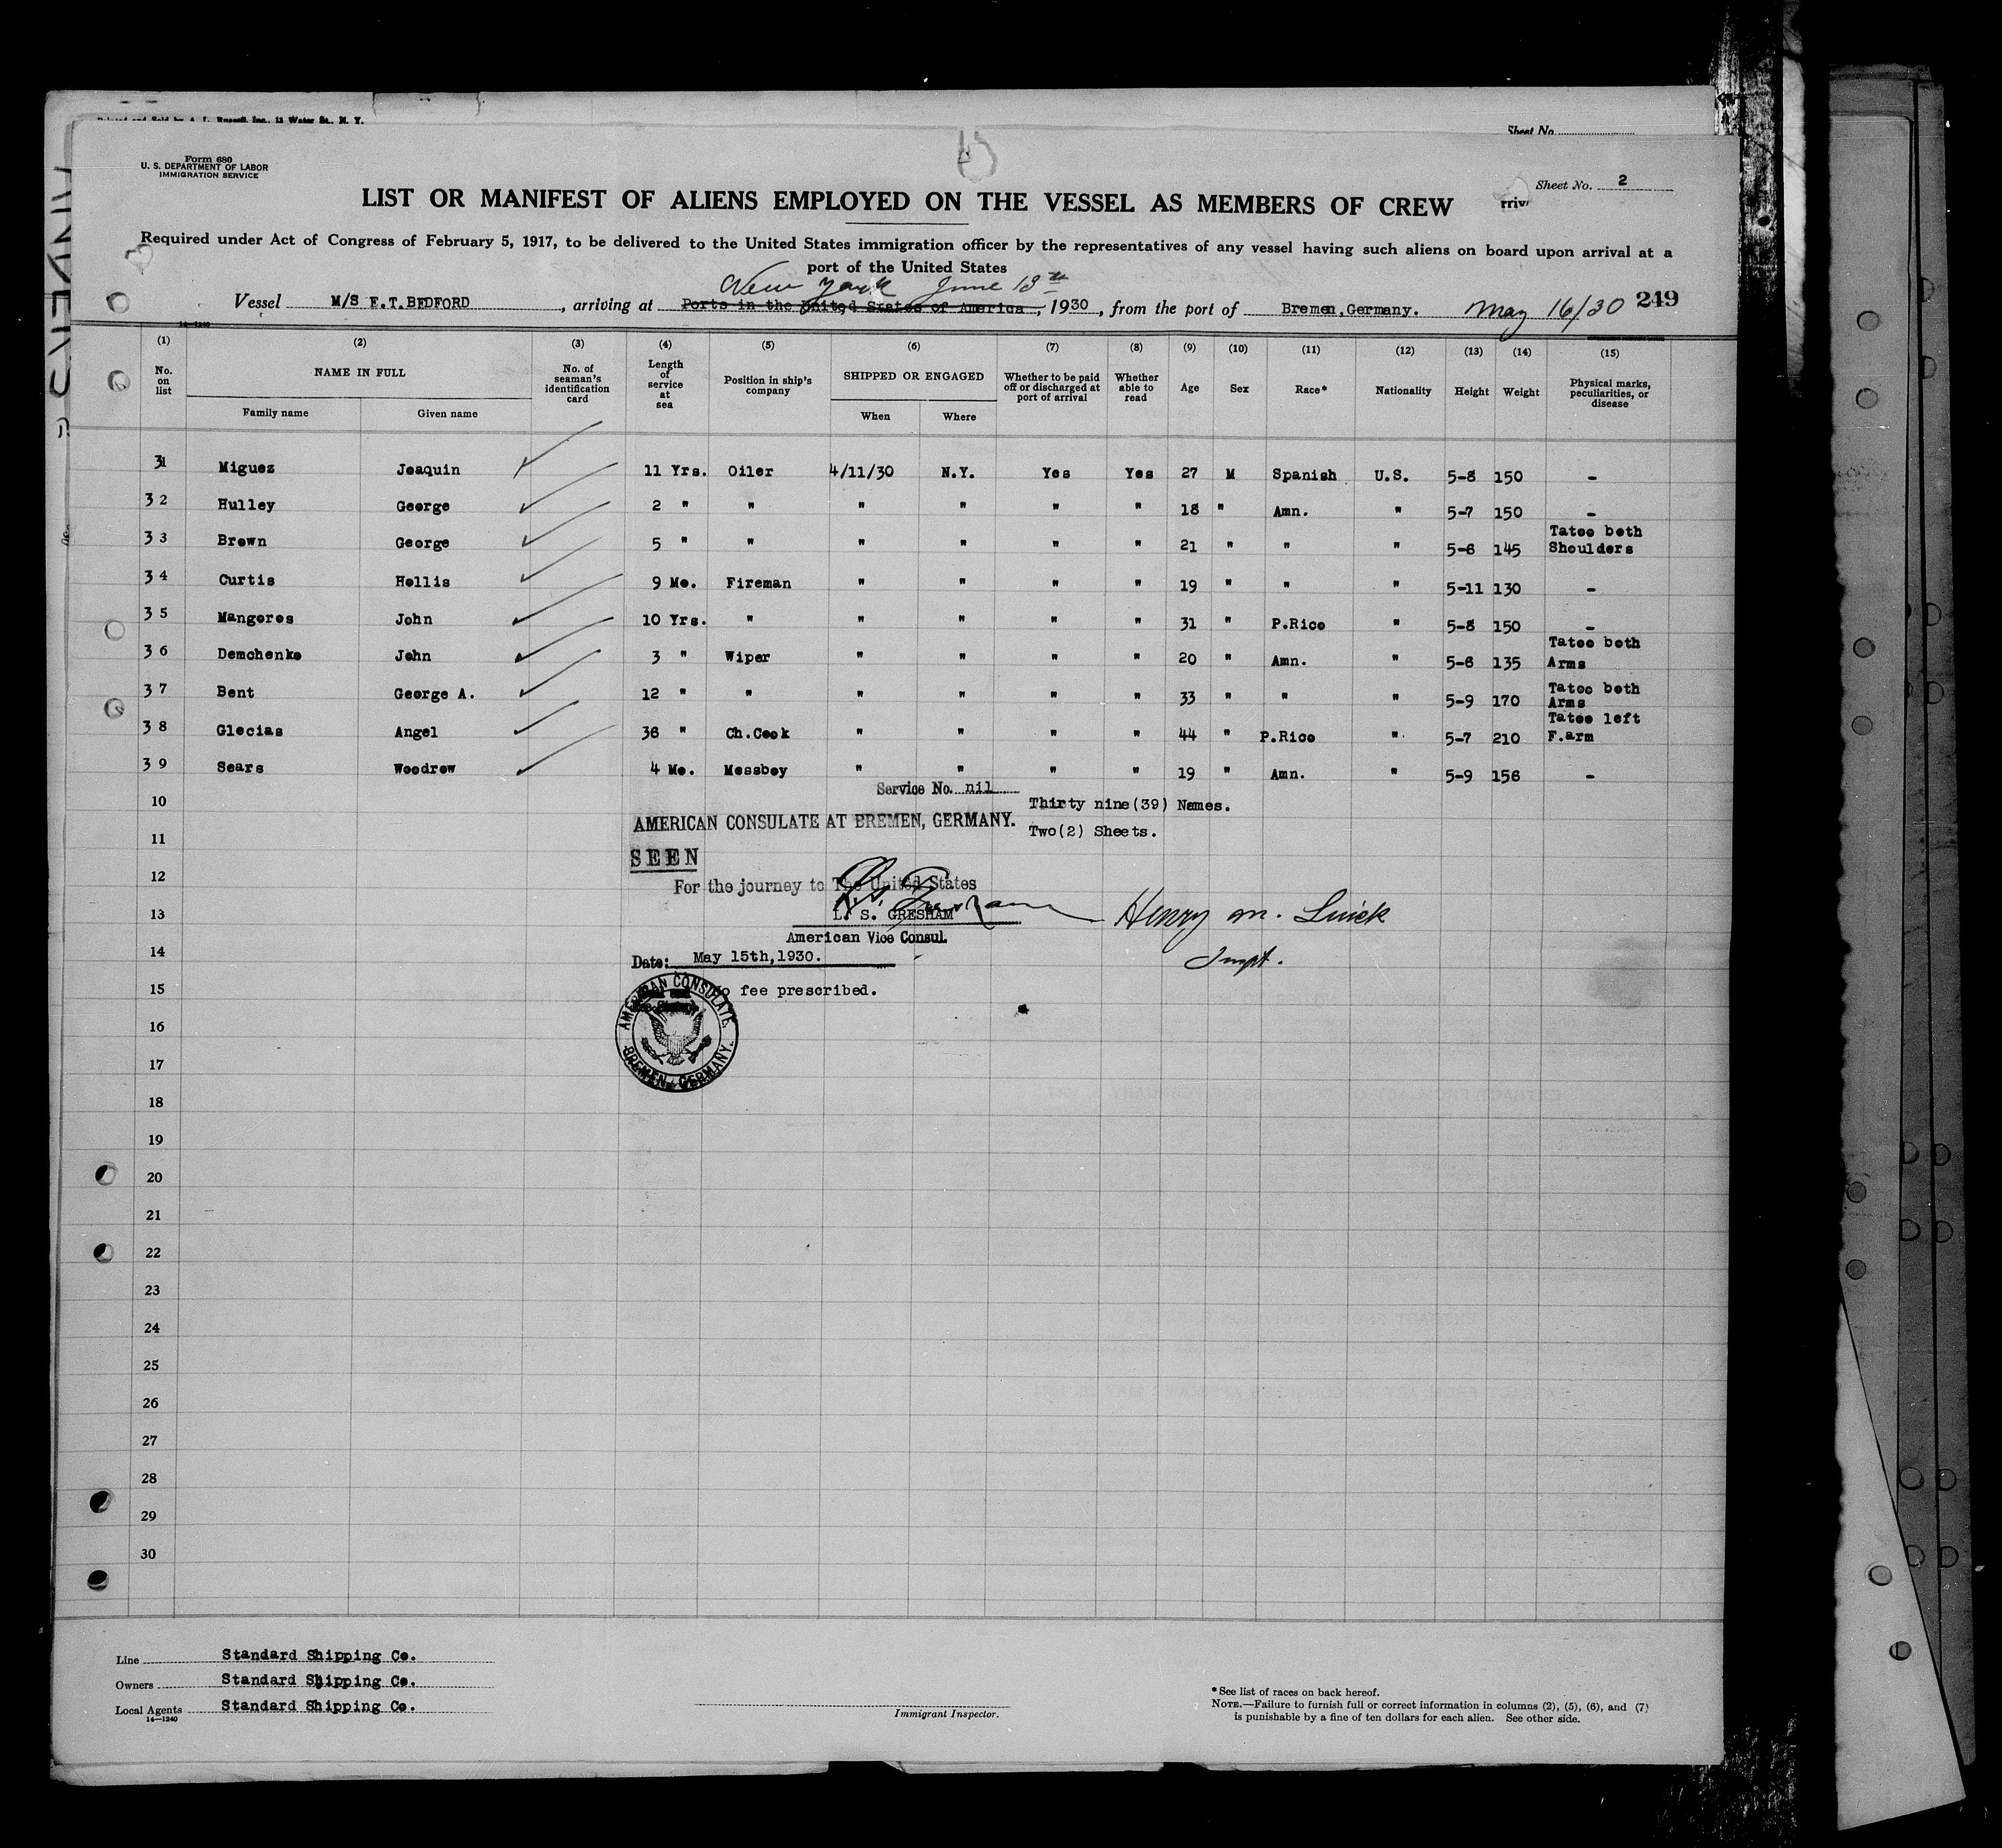 Printed and Sold by A. L. Russell, Inc., 11 Water St., N. Y.
Sheet No.
Form 680
U. S. DEPARTMENT OF LABOR
IMMIGRATION SERVICE
Sheet No. 2
LIST OR MANIFEST OF ALIENS EMPLOYED ON THE VESSEL AS MEMBERS OF CREW
Required under Act of Congress of February 5, 1917, to be delivered to the United States immigration officer by the representatives of any vessel having such aliens on board upon arrival at a
port of the United States
New York June 13th
Vessel M/S E.T.BEDFORD, arriving at Ports in the United States of America, 1930, from the port of Bremen,Germany. May 16/30 249
14-1240
(1) (2) (3) (4) (5) (6) (7) (8) (9) (10) (11) (12) (13) (14) (15)
No. on list NAME IN FULL Family name Given name No. of seaman's identification card Length of service at sea Position in ship's company SHIPPED OR ENGAGED When Where Whether to be paid off or discharged at port of arrival Whether able to read Age Sex Race* Nationality Height Weight Physical marks, peculiarities, or disease
31 Miguez Joaquin 11 Yrs. Oiler 4/11/30 N.Y. Yes Yes 27 M Spanish U.S. 5-8 150 -
32 Hulley George 2 " " " " " " 18 " Amn. " 5-7 150 -
33 Brown George 5 " " " " " " 21 " " " 5-6 145 Tatoo both Shoulders
34 Curtis Hollis 9 Mo. Fireman " " " " 19 " " " 5-11 130 -
35 Mangoros John 10 Yrs. " " " " " 31 " P.Rico " 5-8 150 -
36 Demchenko John 3 " Wiper " " " " 20 " Amn. " 5-6 135 Tatoo both Arms
37 Bent George A. 12 " " " " " " 33 " " " 5-9 170 Tatoo both Arms
38 Glecias Angel 36 " Ch.Cook " " " " 44 " P.Rico " 5-7 210 Tatoo left F.arm
39 Sears Woodrow 4 Mo. Messboy " " " " 19 " Amn. " 5-9 156 -
Service No. nil
10 Thirty nine(39) Names.
AMERICAN CONSULATE AT BREMEN, GERMANY.
11 Two(2) Sheets.
SEEN
12 For the journey to The United States
13 L. S. GRESHAM Henry M. Quick
American Vice Consul.
14 Date: May 15th,1930.
15 fee prescribed.
AMERICAN CONSULATE
BREMEN, GERMANY.
16
17
18
19
20
21
22
23
24
25
26
27
28
29
30
Line Standard Shipping Co.
Owners Standard Shipping Co.
Local Agents Standard Shipping Co.
14-1240
Immigrant Inspector.
*See list of races on back hereof.
NOTE.—Failure to furnish full or correct information in columns (2), (5), (6), and (7)
is punishable by a fine of ten dollars for each alien. See other side.